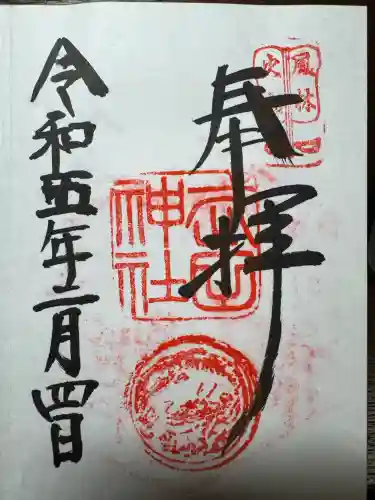 風林
火
奉拝
武田
神社
令和五年十二月四日